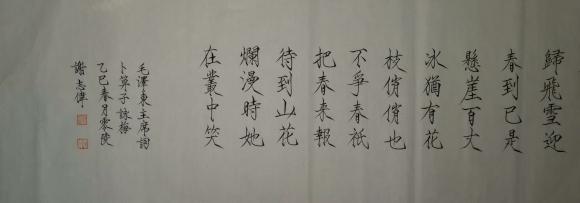 歸飛雪迎
春到已是
懸崖百丈
冰猶有花
枝俏俏也
不爭春祇
把春来報
待到山花
爛漫時她
在叢中笑
毛澤東主席詞
卜算子詠梅
乙巳春月零陵
謝志偉